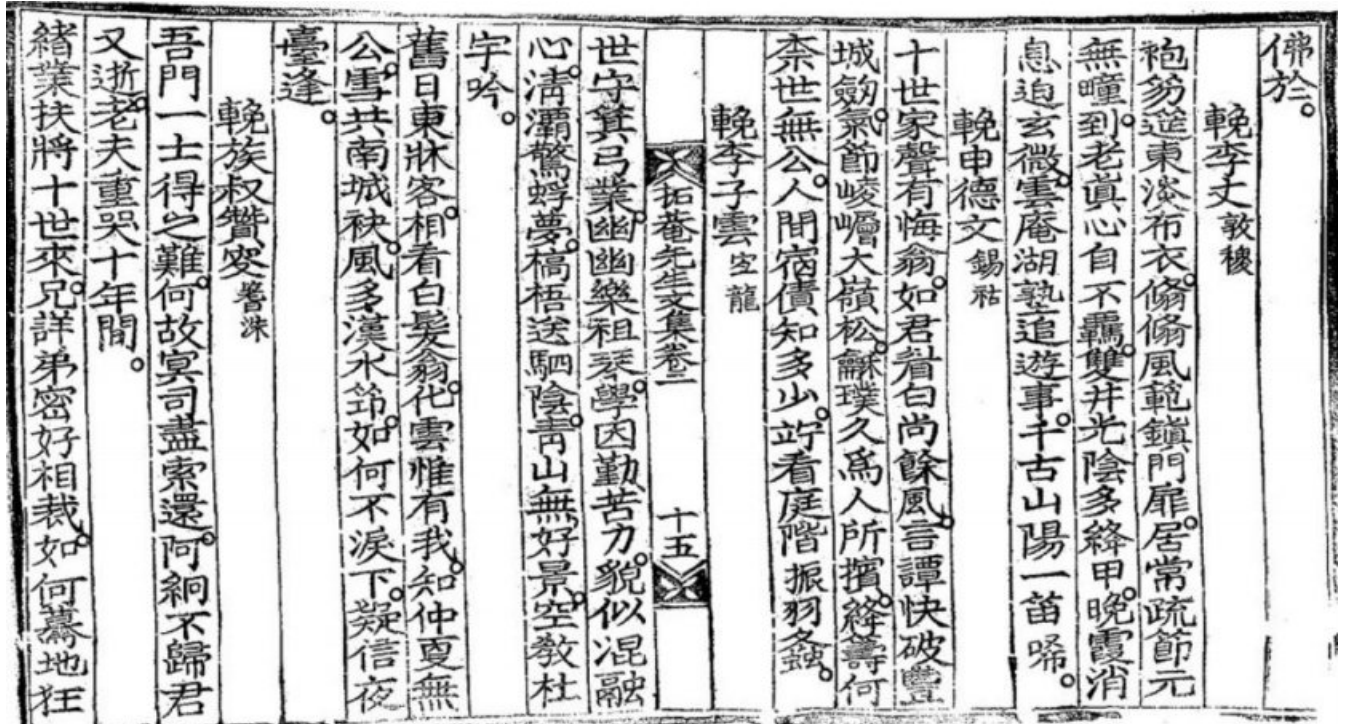 佛於。
輓李丈敦稷
袍笏筵東淡布衣。翛翛風範鎭門扉。居常疏節元
無疃。到老眞心自不羈。雙井光陰多絳甲。晩霞消
息迫玄微。雲庵湖塾追遊事。千古山陽一笛啼。
輓申德文錫祜
十世家聲有悔翁。如君眉白尙餘風。言譚快破豐
城劒。氣節崚嶒大嶺松。龢璞久爲人所擯。絳蕚何
柰世無公。人間宿債知多少。竚看庭階振羽螽。
輓李子雲空龍
拓菴先生文集卷二 十五
世守箕弓業。幽幽樂祖琴。學因勤苦力。貌似混融
心。淸灞驚蜉夢。槁梧送駟陰。靑山無好景。空敎杜
宇吟。
舊日東牀客。相看白髮翁。化雲惟有我。知仲更無
公。雪共南城袂。風多漢水筇。如何不淚下。疑信夜
臺逢。
輓族叔贊叟箸洙
吾門一士得之難。何故冥司盡索還。阿絅不歸君
又逝。老夫重哭十年間。
緖業扶將十世來。兄詳弟密好相裁。如何驀地狂